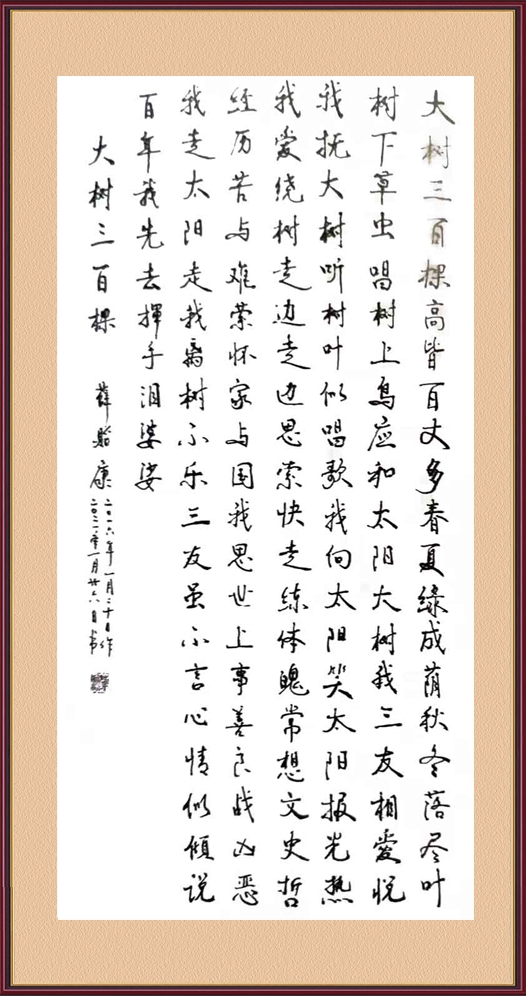 大树三百棵高皆百丈多春夏绿成荫秋冬落尽叶
树下草虫唱树上鸟应和太阳大树我三友相爱悦
我抚大树听树叶似唱歌我向太阳笑太阳报光热
我爱绕树走边走边思索快走练体魄常想文史哲
经历苦与难萦怀家与国我思世上事善良战凶恶
我走太阳走我离树不乐三友虽不言心情似倾说
百年我先去揮手泪婆娑
大树三百棵 薛贻康
二〇一六年一月二十日作
二〇二一年一月廿六日书